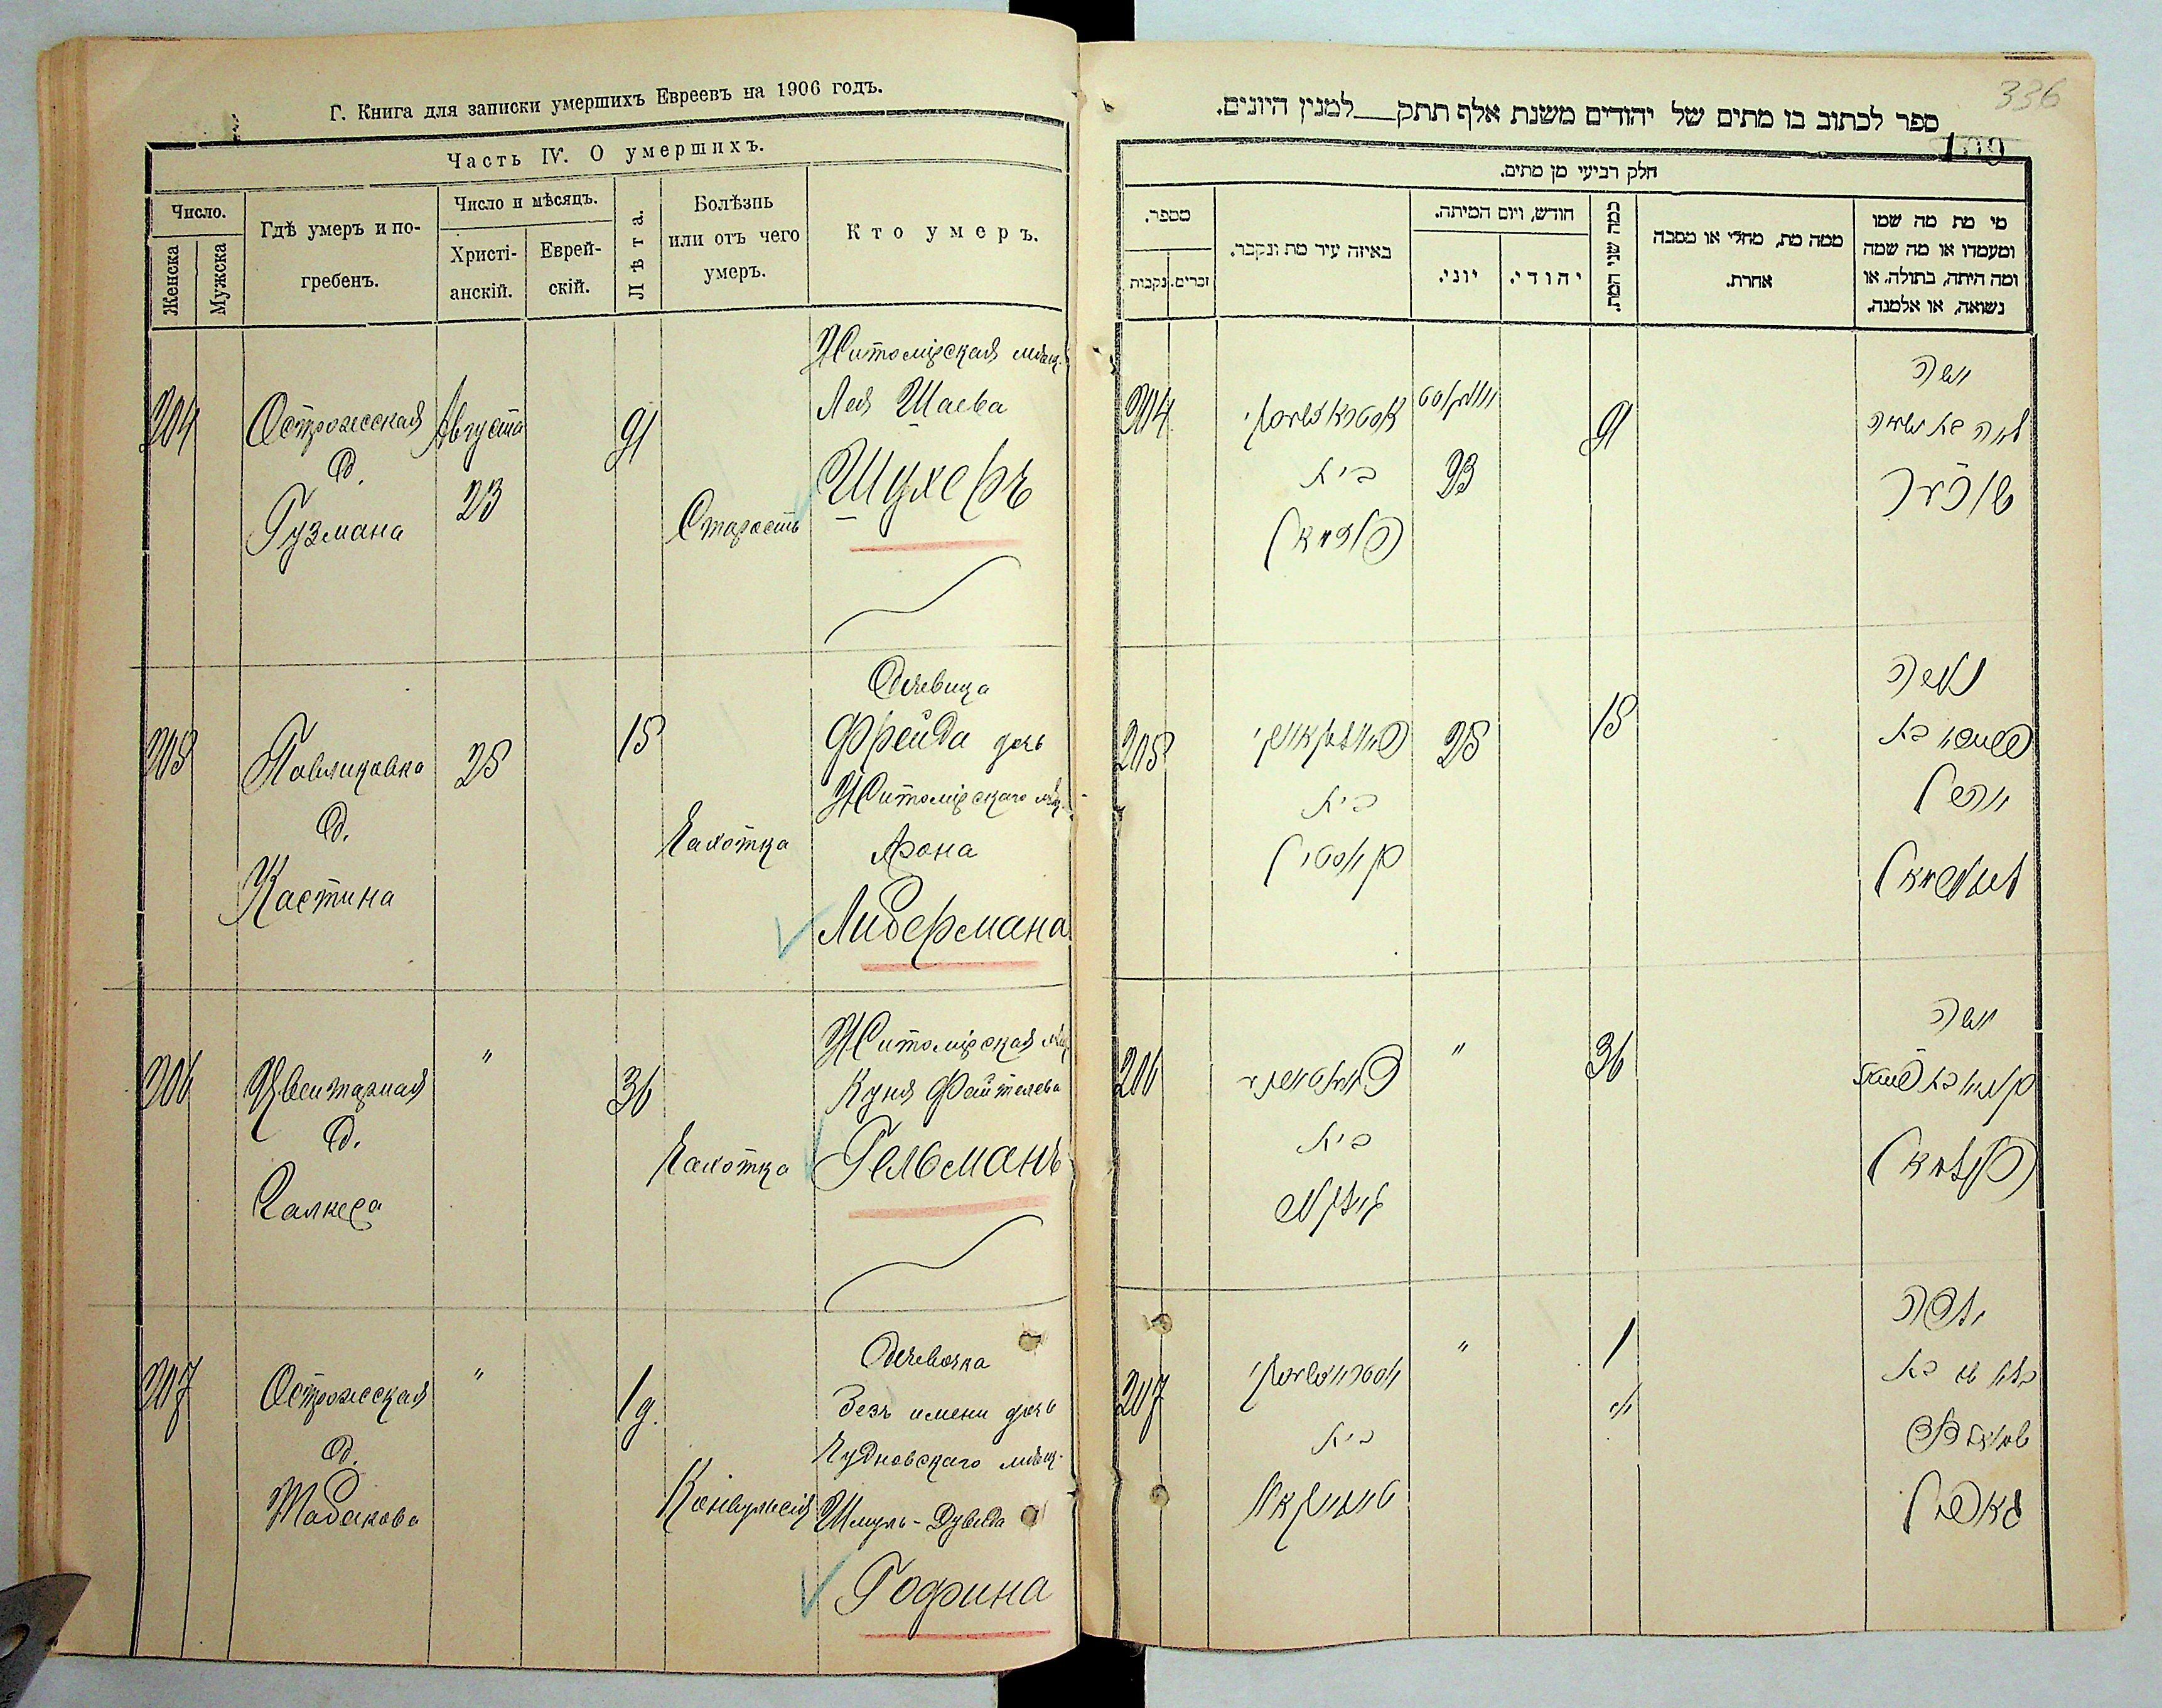 Г. Книга для записки умершихъ Евреевъ на 1906 годъ.
Часть IV. О умершихъ.
Число.
Женска
Мужска
Гдѣ умеръ и по-
гребенъ.
Число и мѣсяцъ.
Христі-
анскій.
Еврей-
скій.
Лѣта.
Болѣзнь
или отъ чего
умеръ.
Кто умеръ.
204
Острожсская
д.
Гузмана
Августа
23
91
Старость
Житомірская мѣщ.
Лея Шаева
Шухеръ
205
Павликовка
д.
Кастина
25
15
Чахотка
Дѣвица
Фрейда дочь
Житомірскаго мѣщ.
Арона
Либермана
206
д.
"
36
Чахотка
Житомірская мѣщ
Куня Файтелева
Гельманъ
207
Острожсская
д.
Табакова
"
1 д.
Конвульсія
Дѣвочка
Безъ имени дочь
Чудновскаго мѣщ.
Шмуль-Дувида
Гофина
336
ספר לכתוב בו מתים של יהודים משנת אלף תתק__למנין היונים.
חלק רביעי מן מתים.
מספר.
זכרים.
נקבות
באיזה עיר מת ונקבר.
חודש, ויום המיתה.
יוני.
יהודי.
כמה שני המת.
ממה מת, מחלי או מסבה
אחרת.
מי מת מה שמו
ומעמדו או מה שמה
ומה היתה, בתולה, או
נשואה, או אלמנה.
204
בית
23
91
אשה
לאה בת
205
בית
25
15
בת
אהרן
206
בית
"
36
אשה
207
בית
"
1
ילדה
בלי שם בת